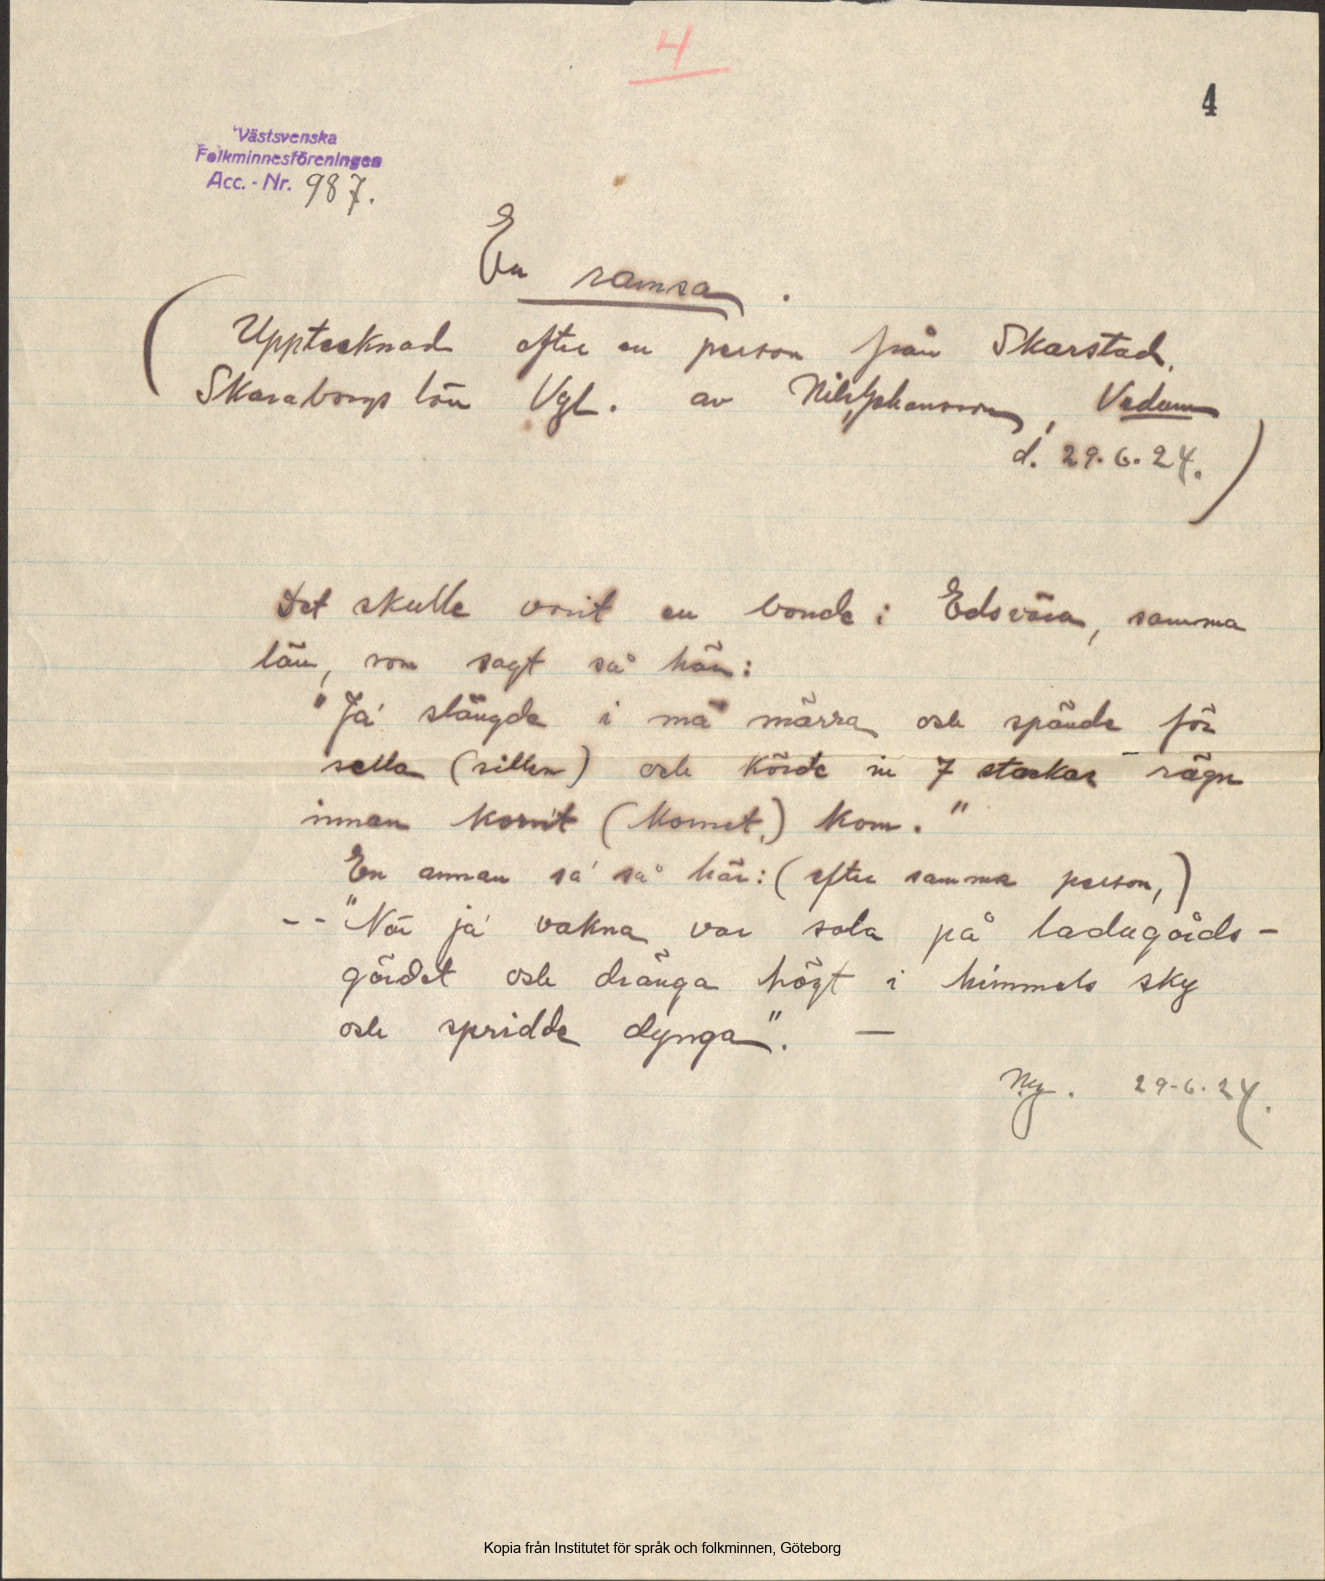 4
4
Västsvenska
Folkminnesföreningen
Acc. - Nr. 987.
En ramsa.
(Upptecknad efter en person från Skarstad,
Skaraborgs län Vgl. av Nils Johansson, Vedum
d. 29.6.24.)
Det skulle vorit en bonde i Edsvära, samma
län, som sagt så här:
"Ja' slängde i mä märra och spände för
sella (sillen) och körde in 7 stackar rägn
innan kornit (kornet) kom."
En annan sa' så här: (efter samma person,)
-- "När ja' vakna var sola på ladugårds-
gärdet och dränga högt i himmels sky
och spridde dynga". —
29-6.24.
Kopia från Institutet för språk och folkminnen, Göteborg